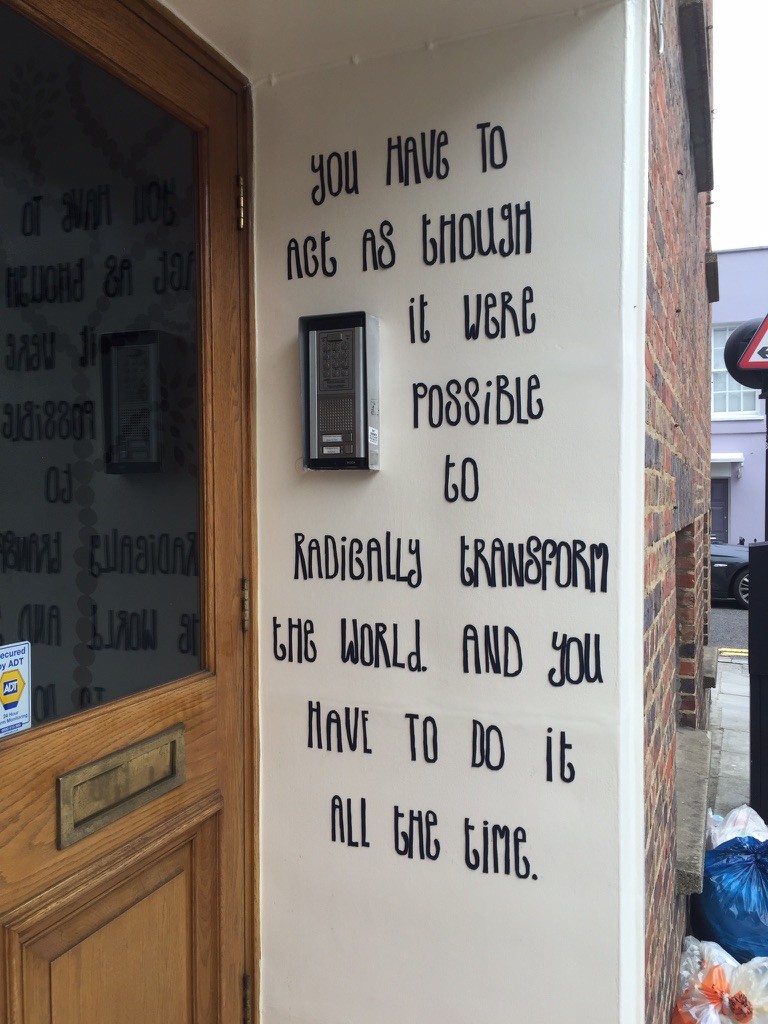 YOU HAVE TO
ACT AS THOUGH
iT WERE
POSSiBLE
TO
RADiCALLY TRANSFORM
THE WORLD. AND YOU
HAVE TO DO iT
ALL THE TiME.
ecured
by ADT
ADT
24 Hour